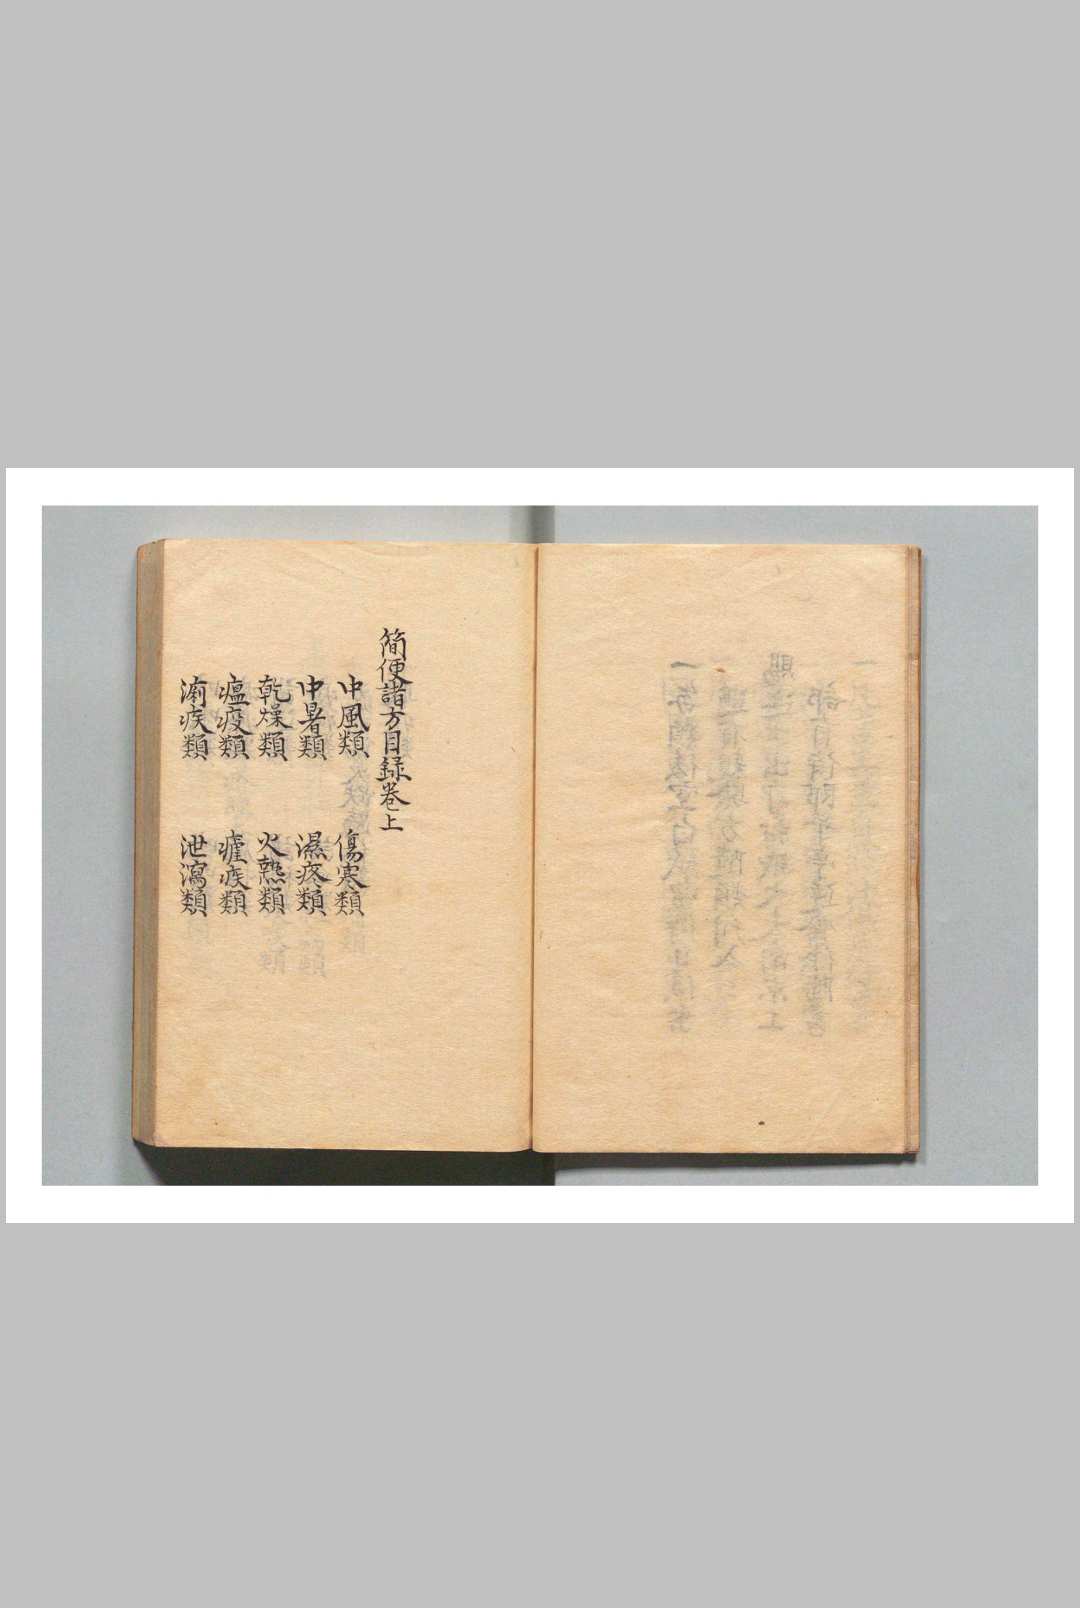 簡便諸方目録卷上
中風類　傷寒類
中暑類　濕疼類
乾燥類　火熱類
瘟疫類　瘧疾類
痢疾類　泄瀉類